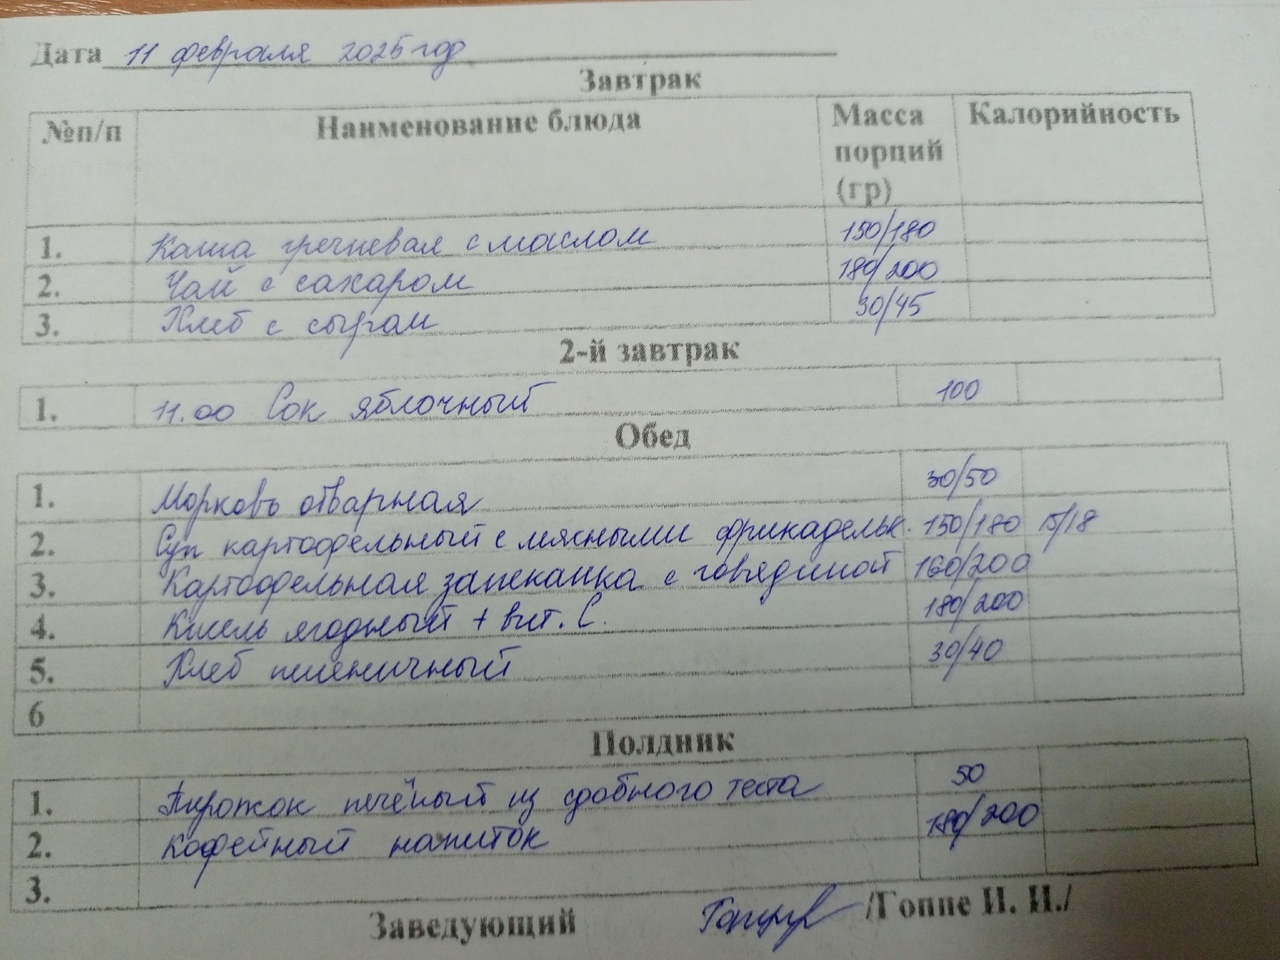 Дата 11 февраля 2025 год
Завтрак
№п/п Наименование блюда Масса порций (гр) Калорийность
1. Каша гречневая с маслом 150/180
2. Чай с сахаром 180/200
3. Хлеб с сыром 30/45
2-й завтрак
1. 11.00 Сок яблочный 100
Обед
1. Морковь отварная 30/50
2. Суп картофельный с мясными фрикадельк. 150/180 15/18
3. Картофельная запеканка с говядиной 160/200
4. Кисель ягодный + вит. С. 180/200
5. Хлеб пшеничный 30/40
6
Полдник
1. Пирожок печёный из сдобного теста 50
2. Кофейный напиток 180/200
3.
Заведующий /Гоппе И. И./